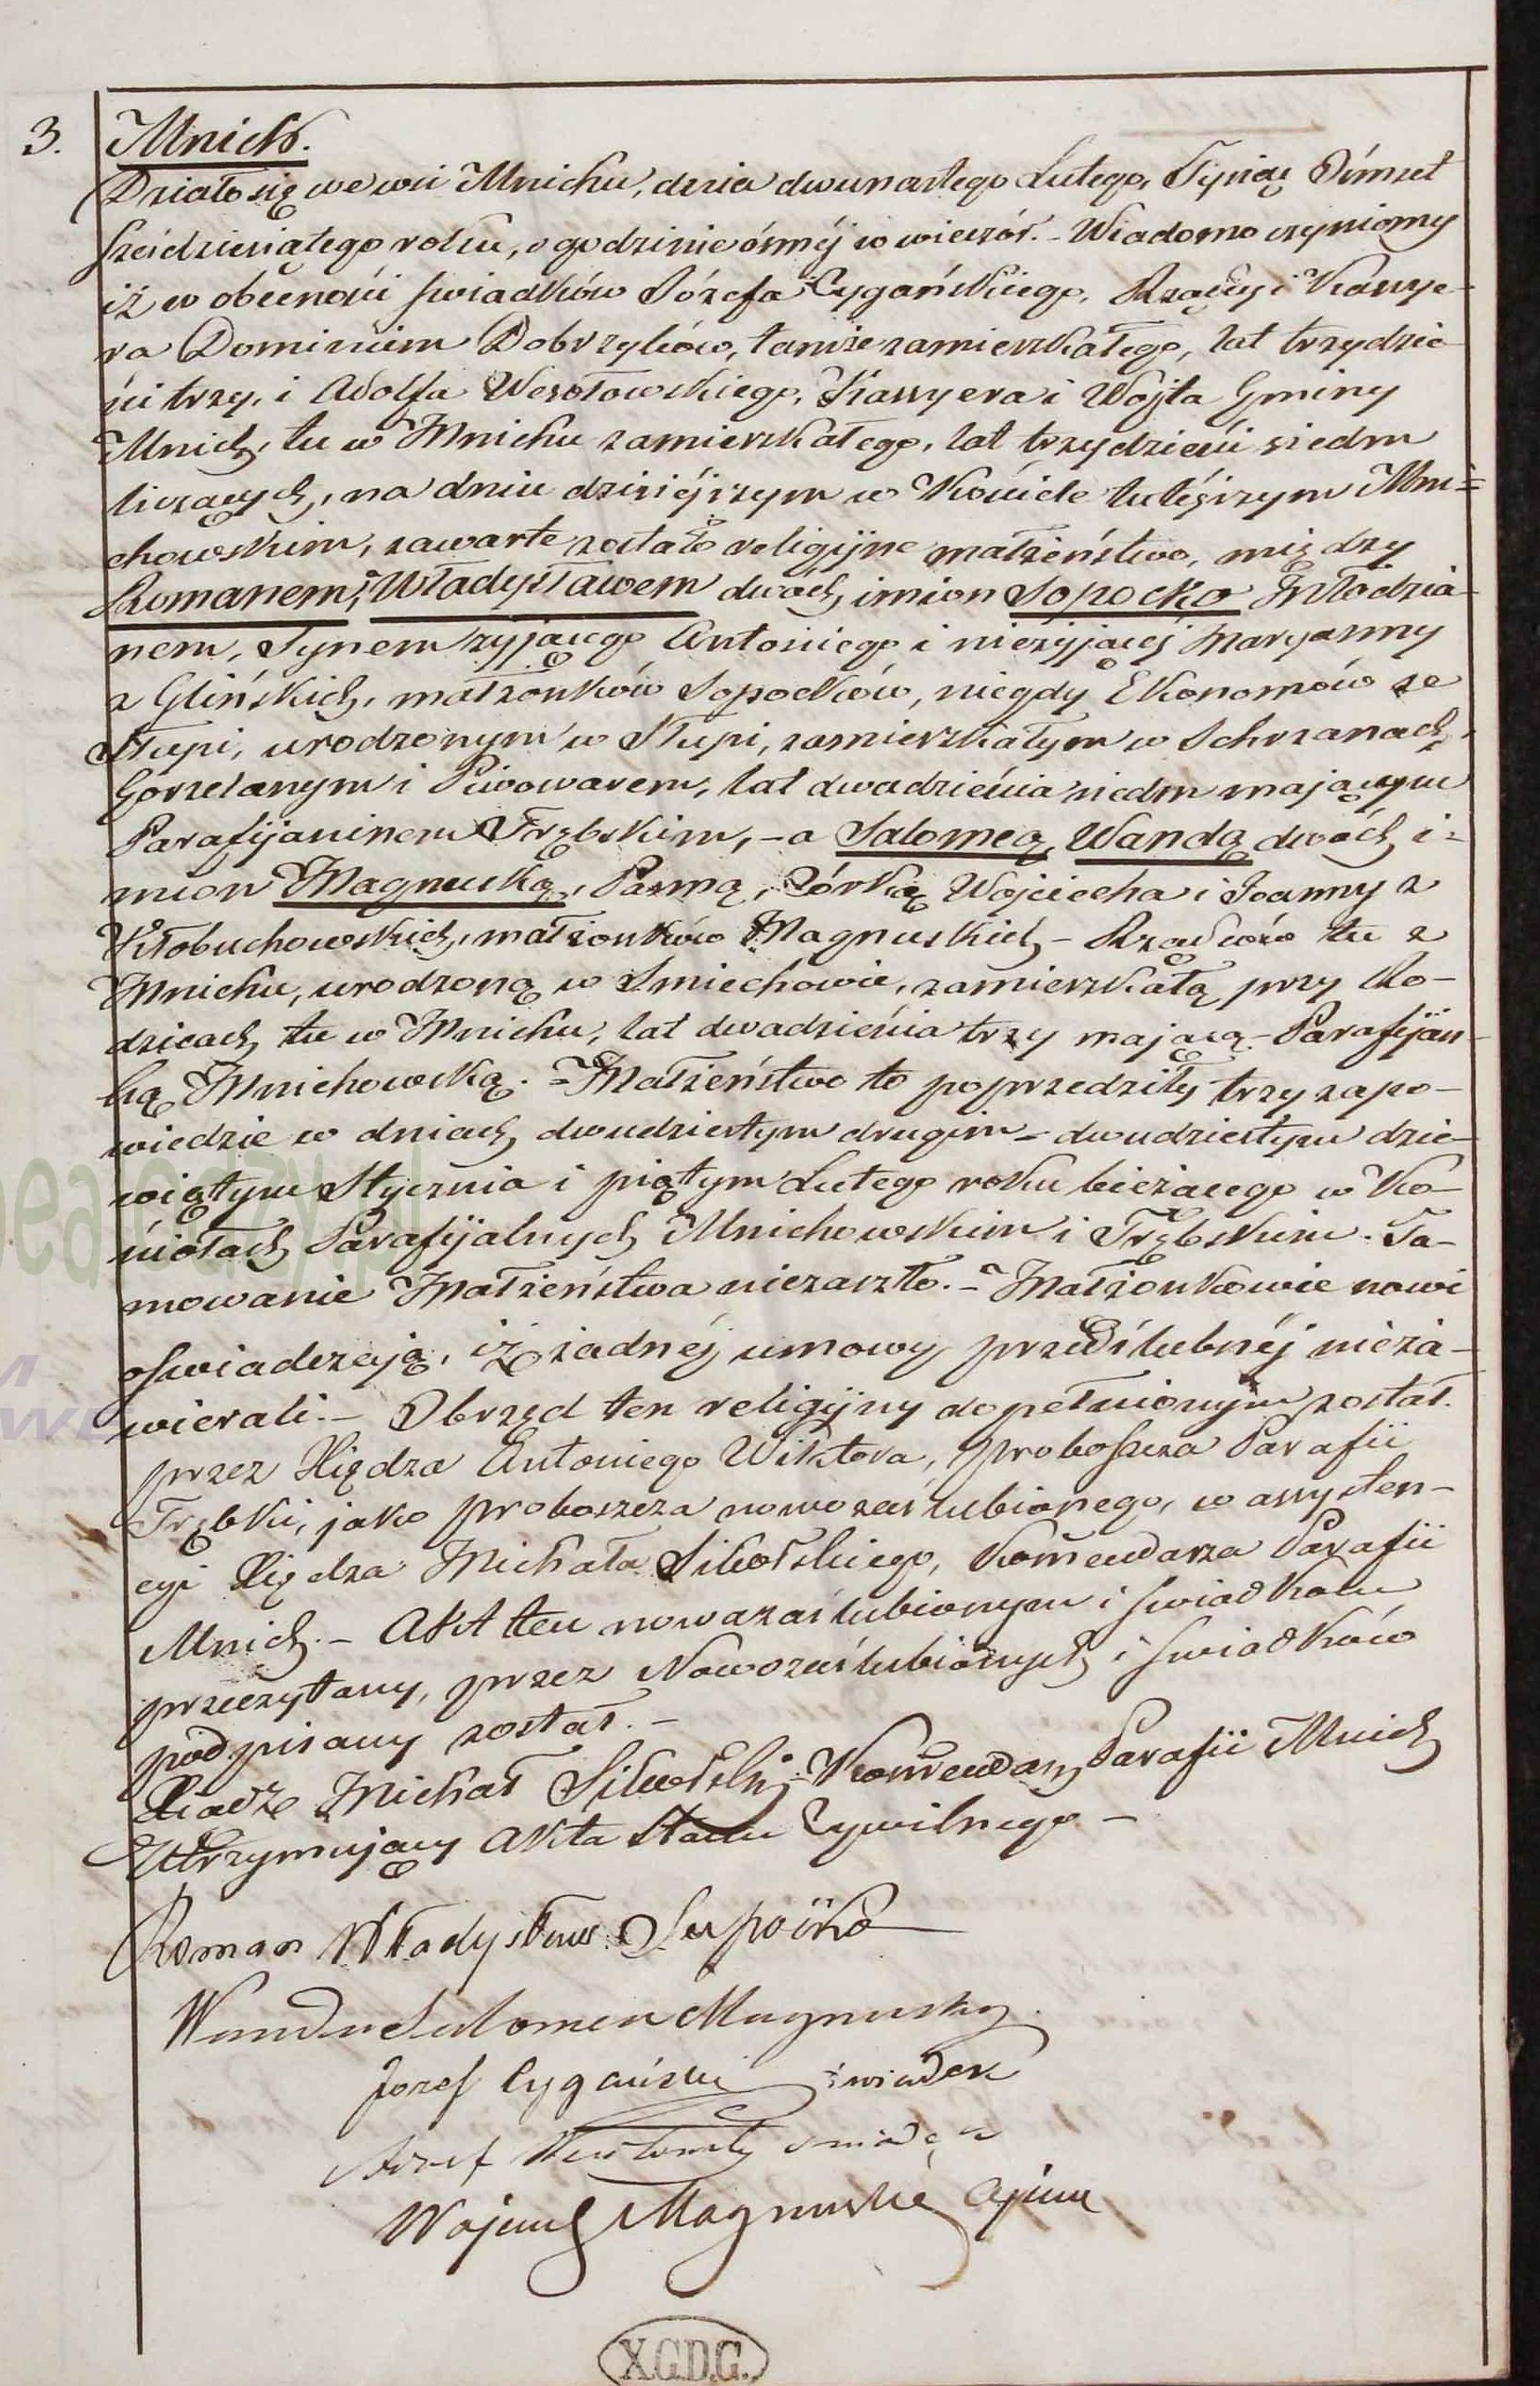 3. Mnich.
Działo się we wsi Mnichu, dnia dwunastego Lutego, Tysiąc Ośmset
sześćdziesiątego roku, o godzinie ósméj w wieczór. - Wiadomo czyniemy
iż w obecności świadków Józefa Cygańskiego, Rządcy i Kassye-
ra Dominium Dobrzyków, tamże zamieszkałego, lat trzydzie-
ści trzy, i Adolfa Wesołowskiego, Kassyera i Wójta Gminy
Mnich, tu w Mnichu zamieszkałego, lat trzydzieści siedm
liczących, na dniu dzisiéjszym w Kościele tutéjszym Mni=
chowskim, zawarte zostało religijne małżeństwo, między
Romanem, Władysławem dwóch imion Sopoćko Młodzia-
nem, Synem żyjącego Antoniego i nieżyjącej Maryanny
z Glińskich, małżonków Sopoćków, niegdy Ekonomów ze
Słupi, urodzonym w Słupi, zamieszkałym w Schrzanach,
Gorzelanym i Piwowarem, lat dwadzieścia siedm mającym
Parafijaninem Trębskim, - a Salomeą, Wandą dwóch i=
mion Magnuską, Panną, Córką Wojciecha i Joanny z
Kłobuchowskich, małżonków Magnuskich - Rządców tu z
Mnichu, urodzoną w Smiechowie, zamieszkałą przy Ro-
dzicach tu w Mnichu, lat dwadzieścia trzy mającą - Parafijan-
ką Mnichowską. - Małżeństwo to poprzedziły trzy zapo-
wiedzie w dniach dwudziestym drugim - dwudziestym dzie-
wiątym Stycznia i piątym Lutego roku bieżącego w Ko-
ściołach Parafijalnych Mnichowskim i Trębskim. Ta-
mowanie Małżeństwa niezaszło. - Małżonkowie nowi
oświadczają, iż żadnéj umowy przedślubnéj nieza-
wierali. - Obrzęd ten religijny dopełnionym został
przez Xiędza Antoniego Wiktora, proboszcza Parafii
Trębki, jako proboszcza nowozaślubionego, w assysten-
cyi Xiędza Michała Sikorskiego, Komendarza Parafii
Mnich. - Akt ten nowozaślubionym i świadkom
przeczytany, przez Nowozaślubionych i świadków
podpisany został. -
Xiądz Michał Sikorski Komendarz Parafii Mnich
Utrzymujący Akta Stanu Cywilnego -
Roman Władysław Supoćko
Wanda Salomea Magnuska
Józef Cygański świadek
Wojciech Magnuski Ojciec
X.G.D.G.